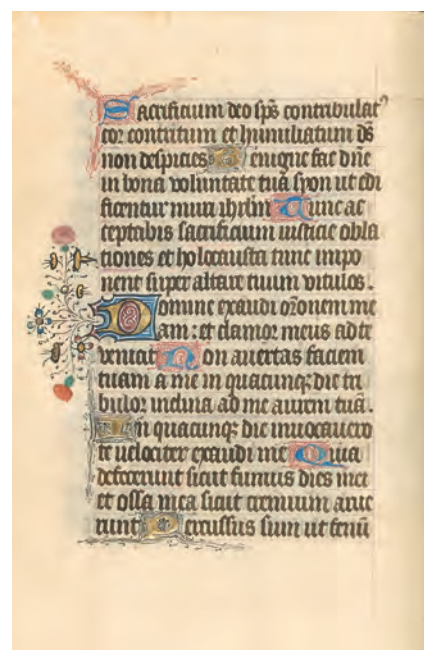 Sacrificium deo sp̄s contribulat᷒
cor contritum et humiliatum d̄s
non despicies Benigne fac dn̄e
in bona voluntate tua syon ut edi
ficentur muri ihrlm̄ Tunc ac
ceptabis sacrificium iusticie obla
tiones et holocausta tunc impo
nent super altare tuum vitulos.
Domine exaudi or̄onem me
am: et clamor meus ad te
veniat Non avertas faciem
tuam a me in quacunqꝫ die tri
bulor inclina ad me aurem tuā.
In quacunqꝫ die invocavero
te velociter exaudi me Quia
defecerunt sicut fumus dies mei
et ossa mea sicut cremium arue
runt Percussus sum ut fenū